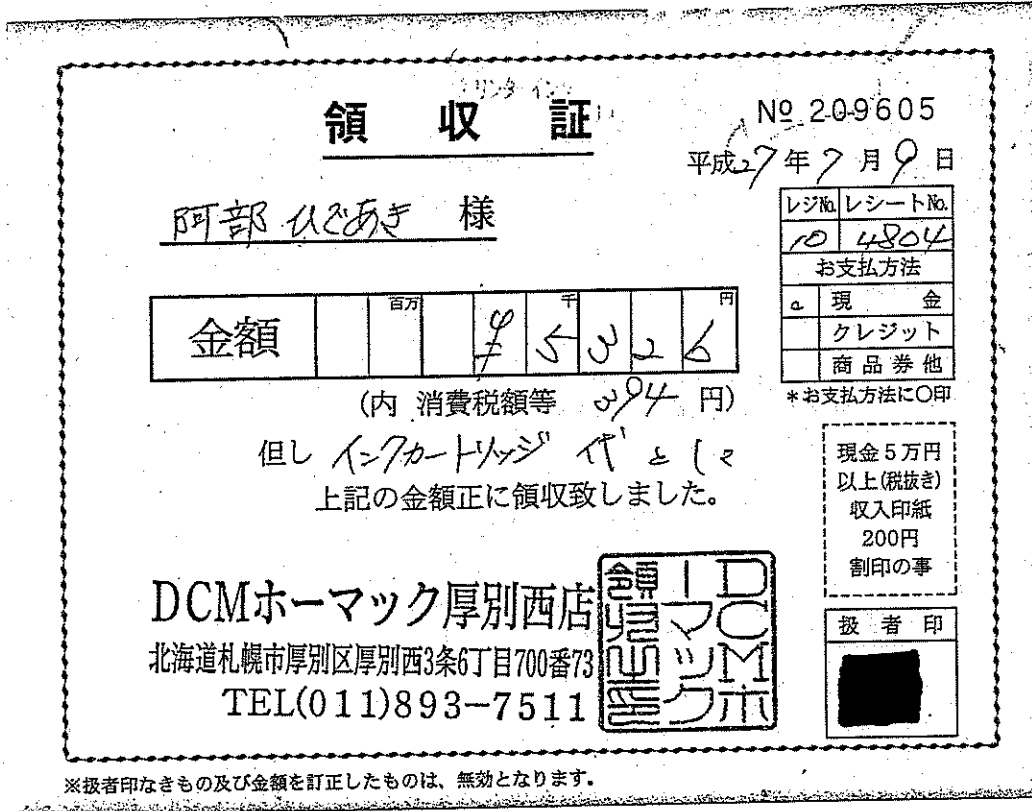 領収証
№ 209605
平成27年7月9日
阿部 ひであき 様
レジ№ レシート№
10 4804
お支払方法
現金
クレジット
商品券他
*お支払方法に○印
金額 百万 千 円
¥5326
(内 消費税額等 394 円)
但し インクカートリッジ 代として
上記の金額正に領収致しました。
現金5万円
以上(税抜き)
収入印紙
200円
割印の事
DCMホーマック厚別西店
北海道札幌市厚別区厚別西3条6丁目700番73
TEL(011)893-7511
DCMホーマック領収書印
扱者印
※扱者印なきもの及び金額を訂正したものは、無効となります。